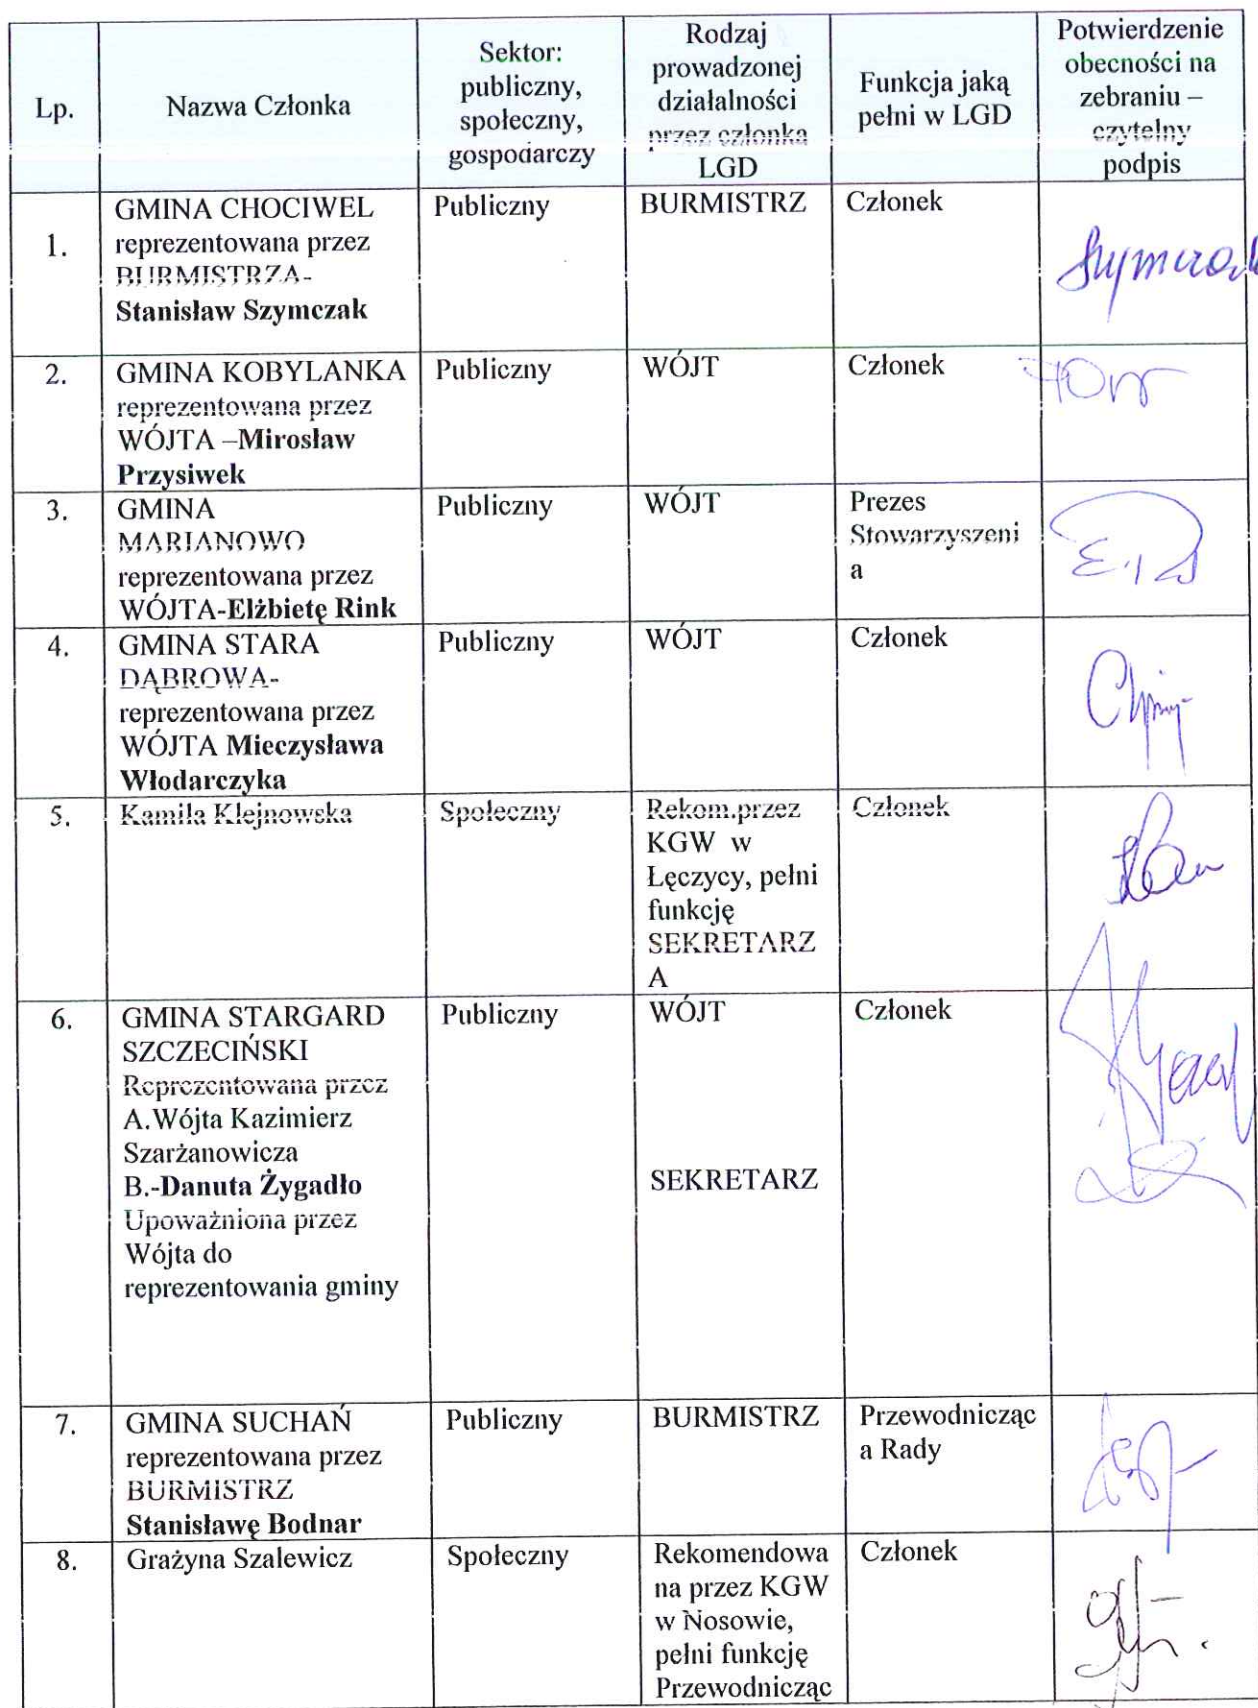 Lp.
Nazwa Członka
Sektor:
publiczny,
społeczny,
gospodarczy
Rodzaj
prowadzonej
działalności
przez członka
LGD
Funkcja jaką
pełni w LGD
Potwierdzenie
obecności na
zebraniu –
czytelny
podpis
1.
GMINA CHOCIWEL
reprezentowana przez
BURMISTRZA-
Stanisław Szymczak
Publiczny
BURMISTRZ
Członek
2.
GMINA KOBYLANKA
reprezentowana przez
WÓJTA –Mirosław
Przysiwek
Publiczny
WÓJT
Członek
3.
GMINA
MARIANOWO
reprezentowana przez
WÓJTA-Elżbietę Rink
Publiczny
WÓJT
Prezes
Stowarzyszeni
a
4.
GMINA STARA
DĄBROWA-
reprezentowana przez
WÓJTA Mieczysława
Włodarczyka
Publiczny
WÓJT
Członek
5.
Kamila Klejnowska
Społeczny
Rekom.przez
KGW w
Łęczycy, pełni
funkcję
SEKRETARZ
A
Członek
6.
GMINA STARGARD
SZCZECIŃSKI
Reprezentowana przez
A.Wójta Kazimierz
Szarżanowicza
B.-Danuta Żygadło
Upoważniona przez
Wójta do
reprezentowania gminy
Publiczny
WÓJT
SEKRETARZ
Członek
7.
GMINA SUCHAŃ
reprezentowana przez
BURMISTRZ
Stanisławę Bodnar
Publiczny
BURMISTRZ
Przewodnicząc
a Rady
8.
Grażyna Szalewicz
Społeczny
Rekomendowa
na przez KGW
w Nosowie,
pełni funkcję
Przewodnicząc
Członek